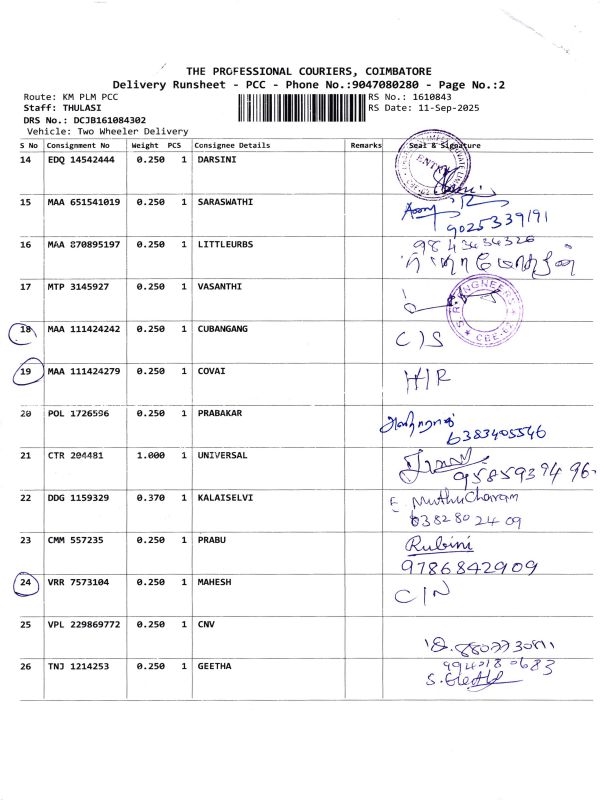 THE PROFESSIONAL COURIERS, COIMBATORE
Delivery Runsheet - PCC - Phone No.:9047080280 - Page No.:2
Route: KM PLM PCC
RS No.: 1610843
Staff: THULASI
RS Date: 11-Sep-2025
DRS No.: DCJB161084302
Vehicle: Two Wheeler Delivery
S No Consignment No Weight PCS Consignee Details Remarks Seal & Signature
14 EDQ 14542444 0.250 1 DARSINI
ENTRY
15 MAA 651541019 0.250 1 SARASWATHI
9025339191
16 MAA 870895197 0.250 1 LITTLEURBS
9843434326
17 MTP 3145927 0.250 1 VASANTHI
S.R. ENGINEERS * CBE-62 *
18 MAA 111424242 0.250 1 CUBANGANG C/S
19 MAA 111424279 0.250 1 COVAI H/R
20 POL 1726596 0.250 1 PRABAKAR
6383405546
21 CTR 204481 1.000 1 UNIVERSAL
95859394 96
22 DDG 1159329 0.370 1 KALAISELVI E MuthuCharam
638280 24 09
23 CMM 557235 0.250 1 PRABU Rubini
9786842909
24 VRR 7573104 0.250 1 MAHESH C/N
25 VPL 229869772 0.250 1 CNV
26 TNJ 1214253 0.250 1 GEETHA
S.Geetha